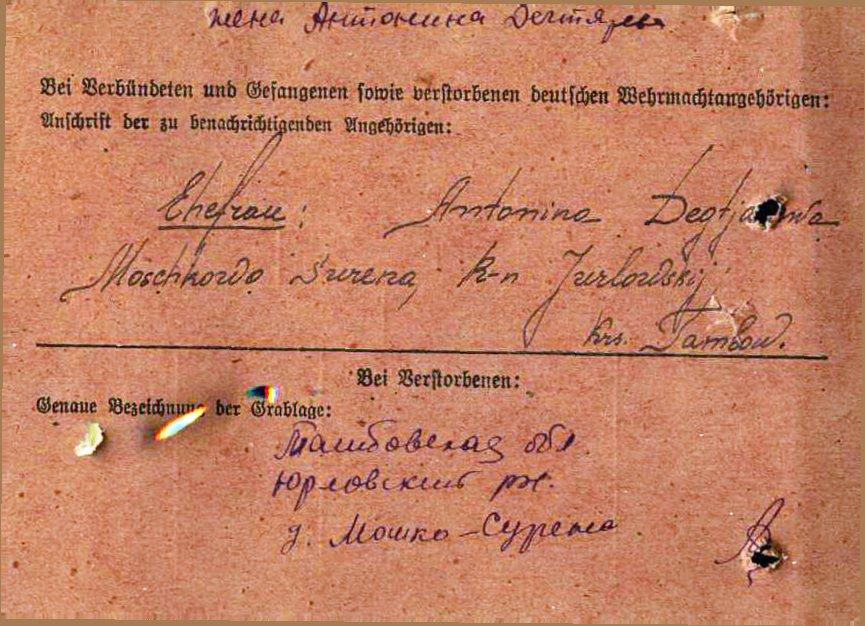 жена Антонина Дегтярева
Bei Verbündeten und Gefangenen sowie verstorbenen deutschen Wehrmachtangehörigen:
Anschrift der zu benachrichtigenden Angehörigen:
Ehefrau: Antonina Degtjarewa
Moschkowo Surena, R-n Jurlowskij,
Krs. Tambow.
Bei Verstorbenen:
Genaue Bezeichnung der Grablage:
Тамбовская обл
Юрловский рн.
д. Мошко-Сурена